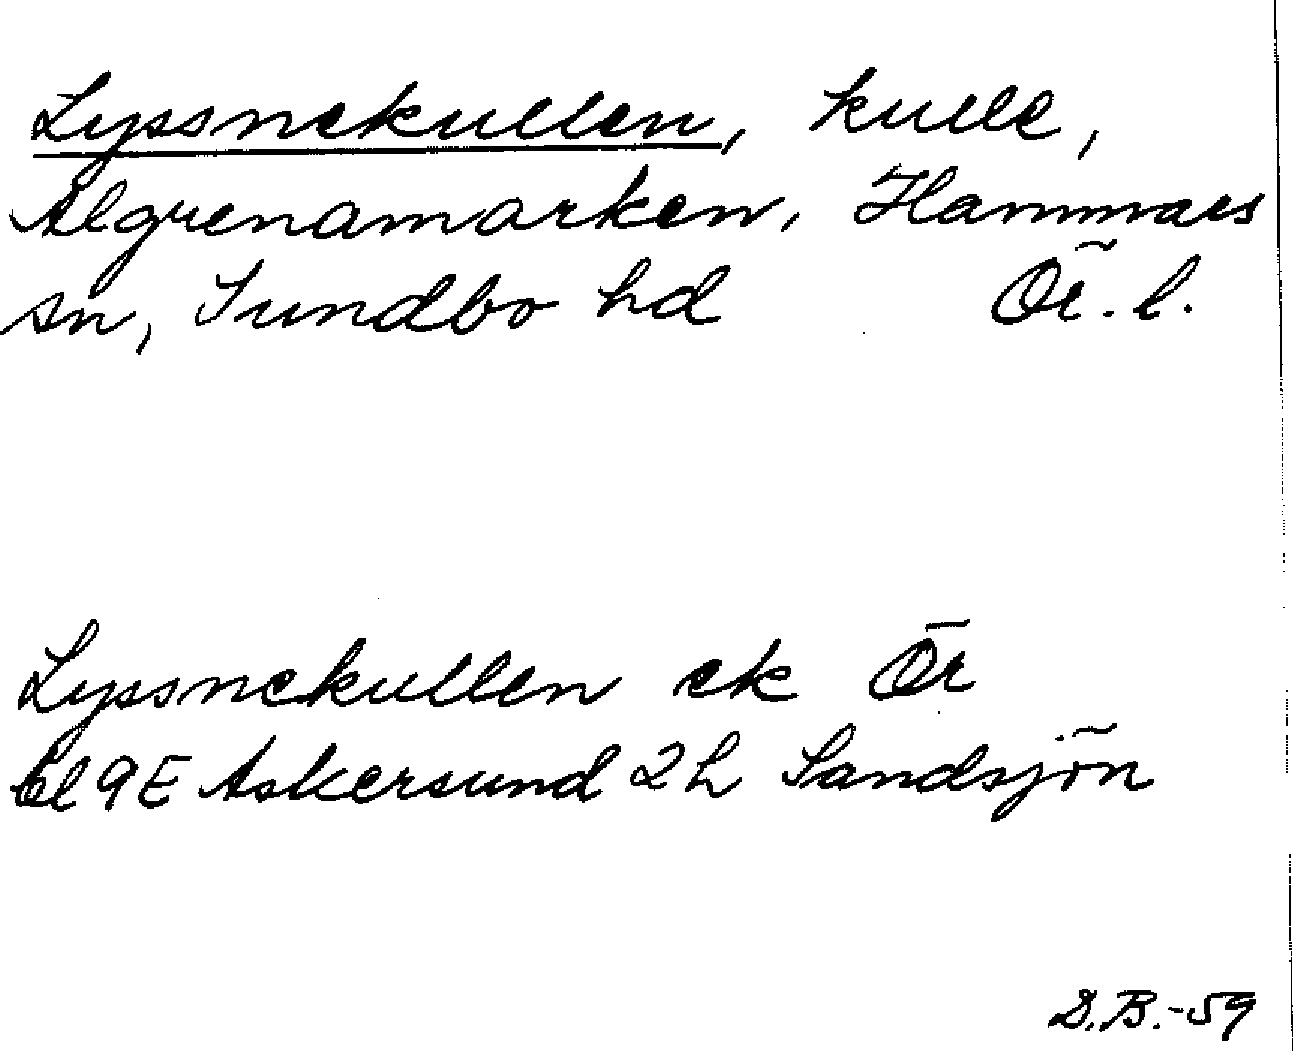 Lyssnekullen, kulle,
Älgrenamarken, Hammars
sn, Sundbo hd Ör. l.
Lyssnekullen ek Ör
bl 9E Askersund 2h Sandsjön
D.B.-59